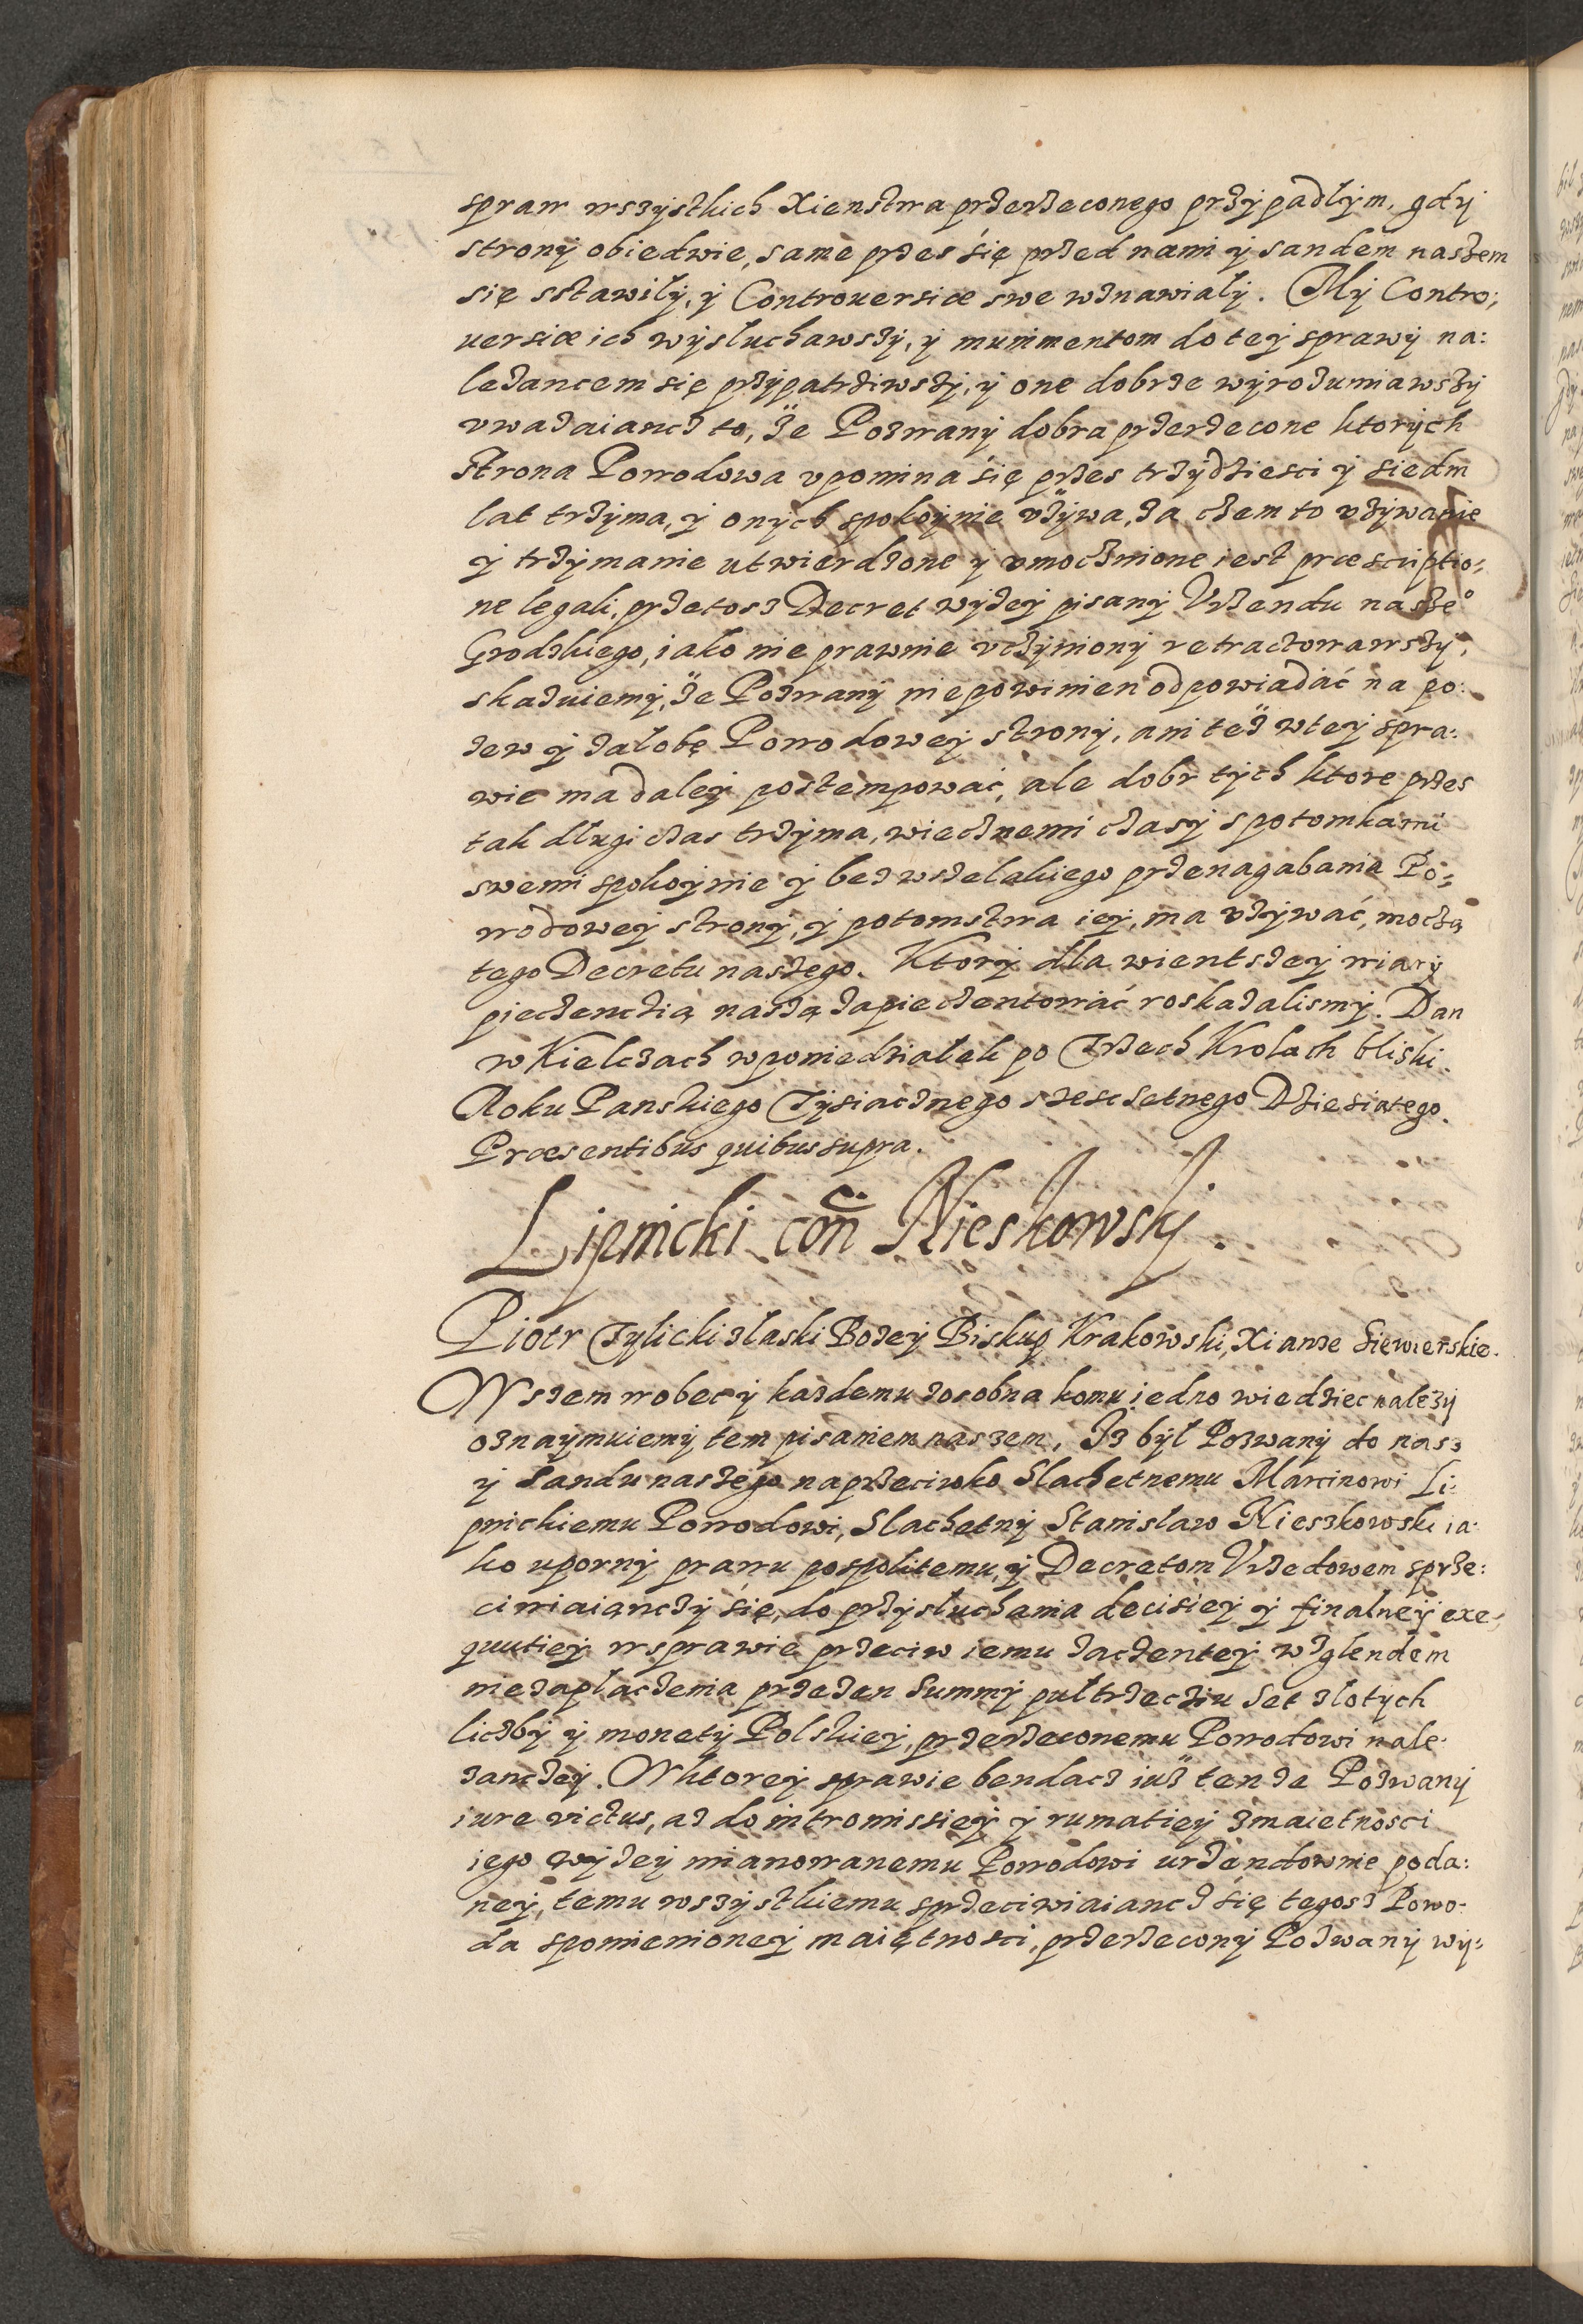 spraw wszystkich Xienstwa przerzeconego przypadłym, gdy
strony obiedwie, same przes się przed nami y sandem naszem
się sstawiły, y Controuersiæ swe wznawiały. My Contro:
uersiæ ich wysłuchawszy, y munimentom do tey sprawy na:
lezancem się przypatrziwszy, y one dobrze wyrozumiawszy
vwazaiancz to, że Pozwany dobra przerzecone ktorych
strona Powodowa vpomina się przes trzydziesci y siedm
lat trzyma, y onych spokoynie vżywa, za czem to vzywanie
y trzymanie utwierdzone y vmocznione iest præscriptio:
ne legali, przetosz Decret wyzey pisany Vrzendu nasze°
Grodzkiego, iako nie prawnie vczyniony retractowawszy,
skazuiemy, że Pozwany niepowinien odpowiadać na po:
zew y załobę Powodowey strony, ani też wtey spra:
wie ma daley postempować, ale dobr tych ktore przes
tak długi czas trzyma, wiecznemi czasy spotomkami
swemi spokoynie y bez wszelakiego przenagabania Po:
wodowey strony, y potomstwa iey, ma vzywać, moczą
tego Decretu naszego. Ktory dla wientszey wiary
pieczenczią naszą zapieczentować roskazalismy. Dan
w Kielczach wponiedziałek po Trzech Krolach bliski.
Roku Panskiego Tysiacznego szescsetnego Dziesiatego.
Præsentibus quibus supra.
Lipnicki con̄ Nieskowskį.
Piotr Tylicki złaski Bozey Biskup Krakowski, Xianze Siewierskie.
Wszem wobec y kazdemu zosobna komu iedno wiedziec nalezy
oznaymuiemy tem pisaniem naszem, Iz był Pozwany do nasz
y Sandu naszego naprzeciwko Slachetnemu Marcinowi Li:
pnickiemu Powodowi, Slachetny Stanisław Nieszkowski ia:
ko uporny prawu pospolitemu, y Decretom Vrzedowem sprze:
ciwiaianczy się, do przysłuchania decisiey y finalney exe:
quutiey wsprawie przeciw iemu zaczentey wzglendem
niezapłaczenia przezen Summy pułtrzeciu set złotych
liczby y monety Polskiey, przerzeconemu Powodowi nale:
zanczey. Wktorey sprawie bendacz iuż tenze Pozwany
iure victus, az do intromissiey y rumatiey zmaietnosci
iego wyzey mianowanemu Powodowi urzendownie poda:
ney, temu wszystkiemu sprzeciwiaiancz się tegosz Powo:
da spomienioney maiętnosci, przerzecony Pozwany wy: